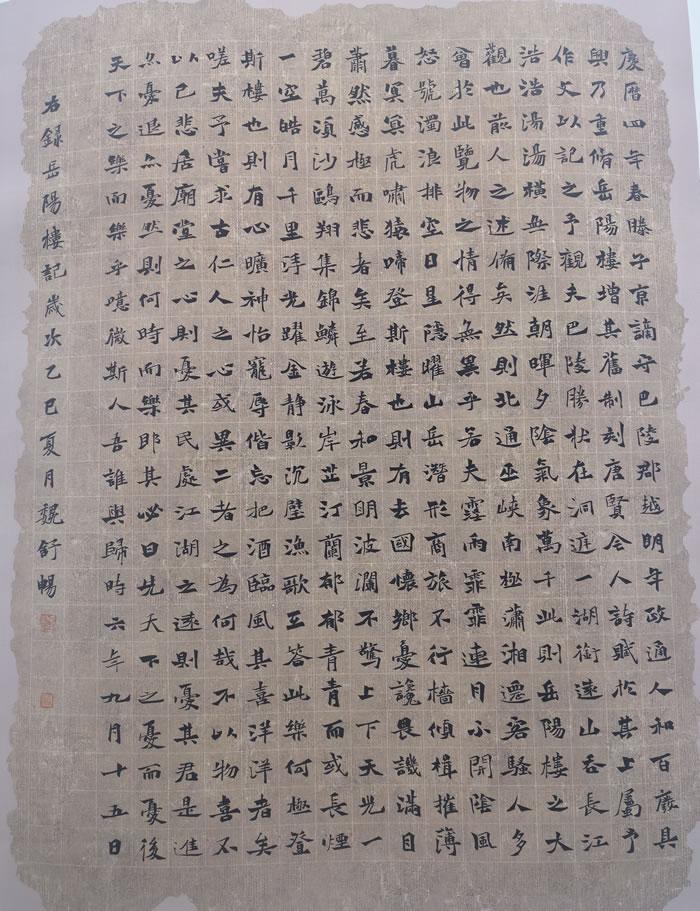 慶曆四年春滕子京謫守巴陵郡越明年政通人和百廢具
興乃重脩岳陽樓增其舊制刻唐賢今人詩賦於其上屬予
作文以記之予觀夫巴陵勝狀在洞庭一湖銜遠山吞長江
浩浩湯湯橫無際涯朝暉夕陰氣象萬千此則岳陽樓之大
觀也前人之述備矣然則北通巫峽南極瀟湘遷客騷人多
會於此覽物之情得無異乎若夫霪雨霏霏連月不開陰風
怒號濁浪排空日星隱曜山岳潛形商旅不行檣傾楫摧薄
暮冥冥虎嘯猿啼登斯樓也則有去國懷鄉憂讒畏譏滿目
蕭然感極而悲者矣至若春和景明波瀾不驚上下天光一
碧萬頃沙鷗翔集錦鱗遊泳岸芷汀蘭郁郁青青而或長煙
一空皓月千里浮光躍金靜影沉璧漁歌互答此樂何極登
斯樓也則有心曠神怡寵辱偕忘把酒臨風其喜洋洋者矣
嗟夫予嘗求古仁人之心或異二者之為何哉不以物喜不
以己悲居廟堂之心則憂其民處江湖之遠則憂其君是進
亦憂退亦憂然則何時而樂耶其必曰先天下之憂而憂後
天下之樂而樂乎噫微斯人吾誰與歸時六年九月十五日
右錄岳陽樓記歲次乙巳夏月魏舒暢